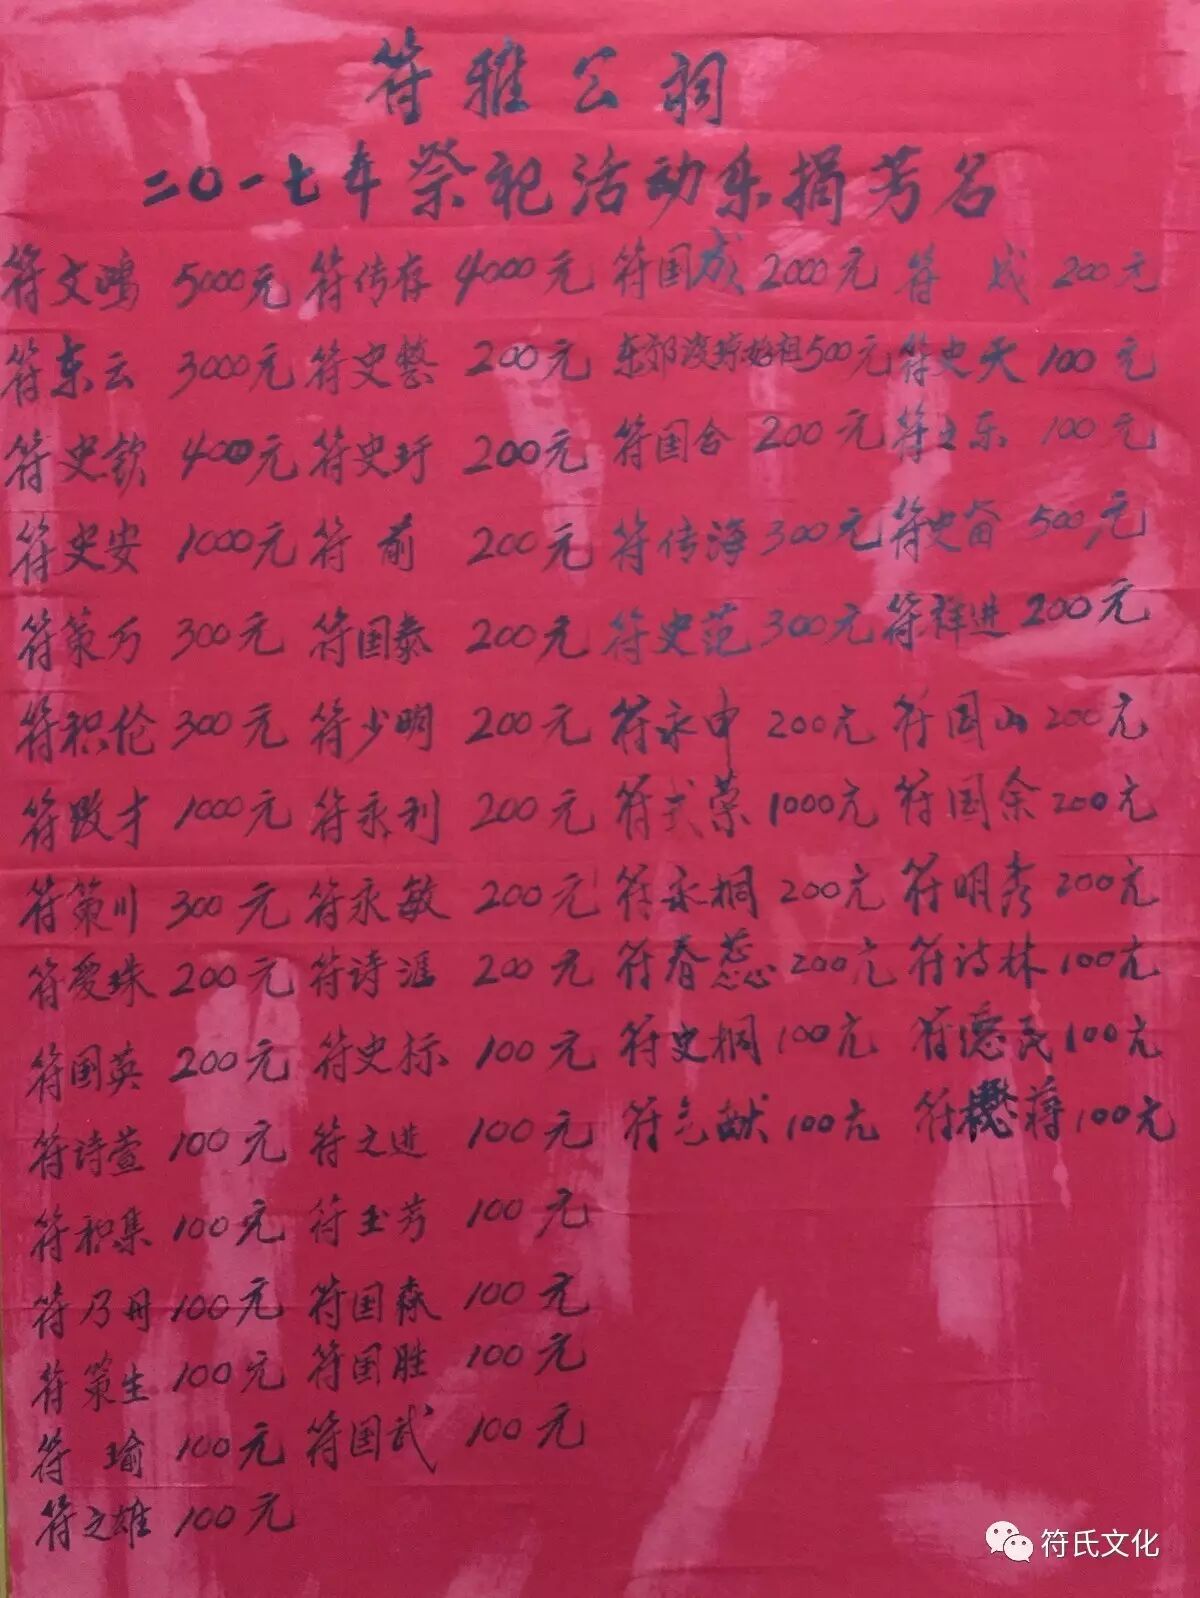 符雅公祠
二〇一七年祭祀活动乐捐芳名
符文鸿 5000元 符传存 4000元 符国成 2000元 符 成 200元
符东云 3000元 符史整 200元 东郊渡琼始祖500元 符史天 100元
符史钦 400元 符史圩 200元 符国合 200元 符之东 100元
符史安 1000元 符 前 200元 符传海 300元 符史奋 500元
符策万 300元 符国泰 200元 符史范 300元 符祥进 200元
符积伦 300元 符少明 200元 符永申 200元 符国山 200元
符致才 1000元 符永利 200元 符式荣 1000元 符国余 200元
符策川 300元 符永敏 200元 符永桐 200元 符明秀 200元
符爱珠 200元 符诗涯 200元 符春蕊 200元 符诗林 100元
符国英 200元 符史标 100元 符史桐 100元 符德民 100元
符诗萱 100元 符之进 100元 符气献 100元 符懋蒋 100元
符积集 100元 符玉芳 100元
符乃丹 100元 符国森 100元
符策生 100元 符国胜 100元
符 瑜 100元 符国武 100元
符之雄 100元
符氏文化